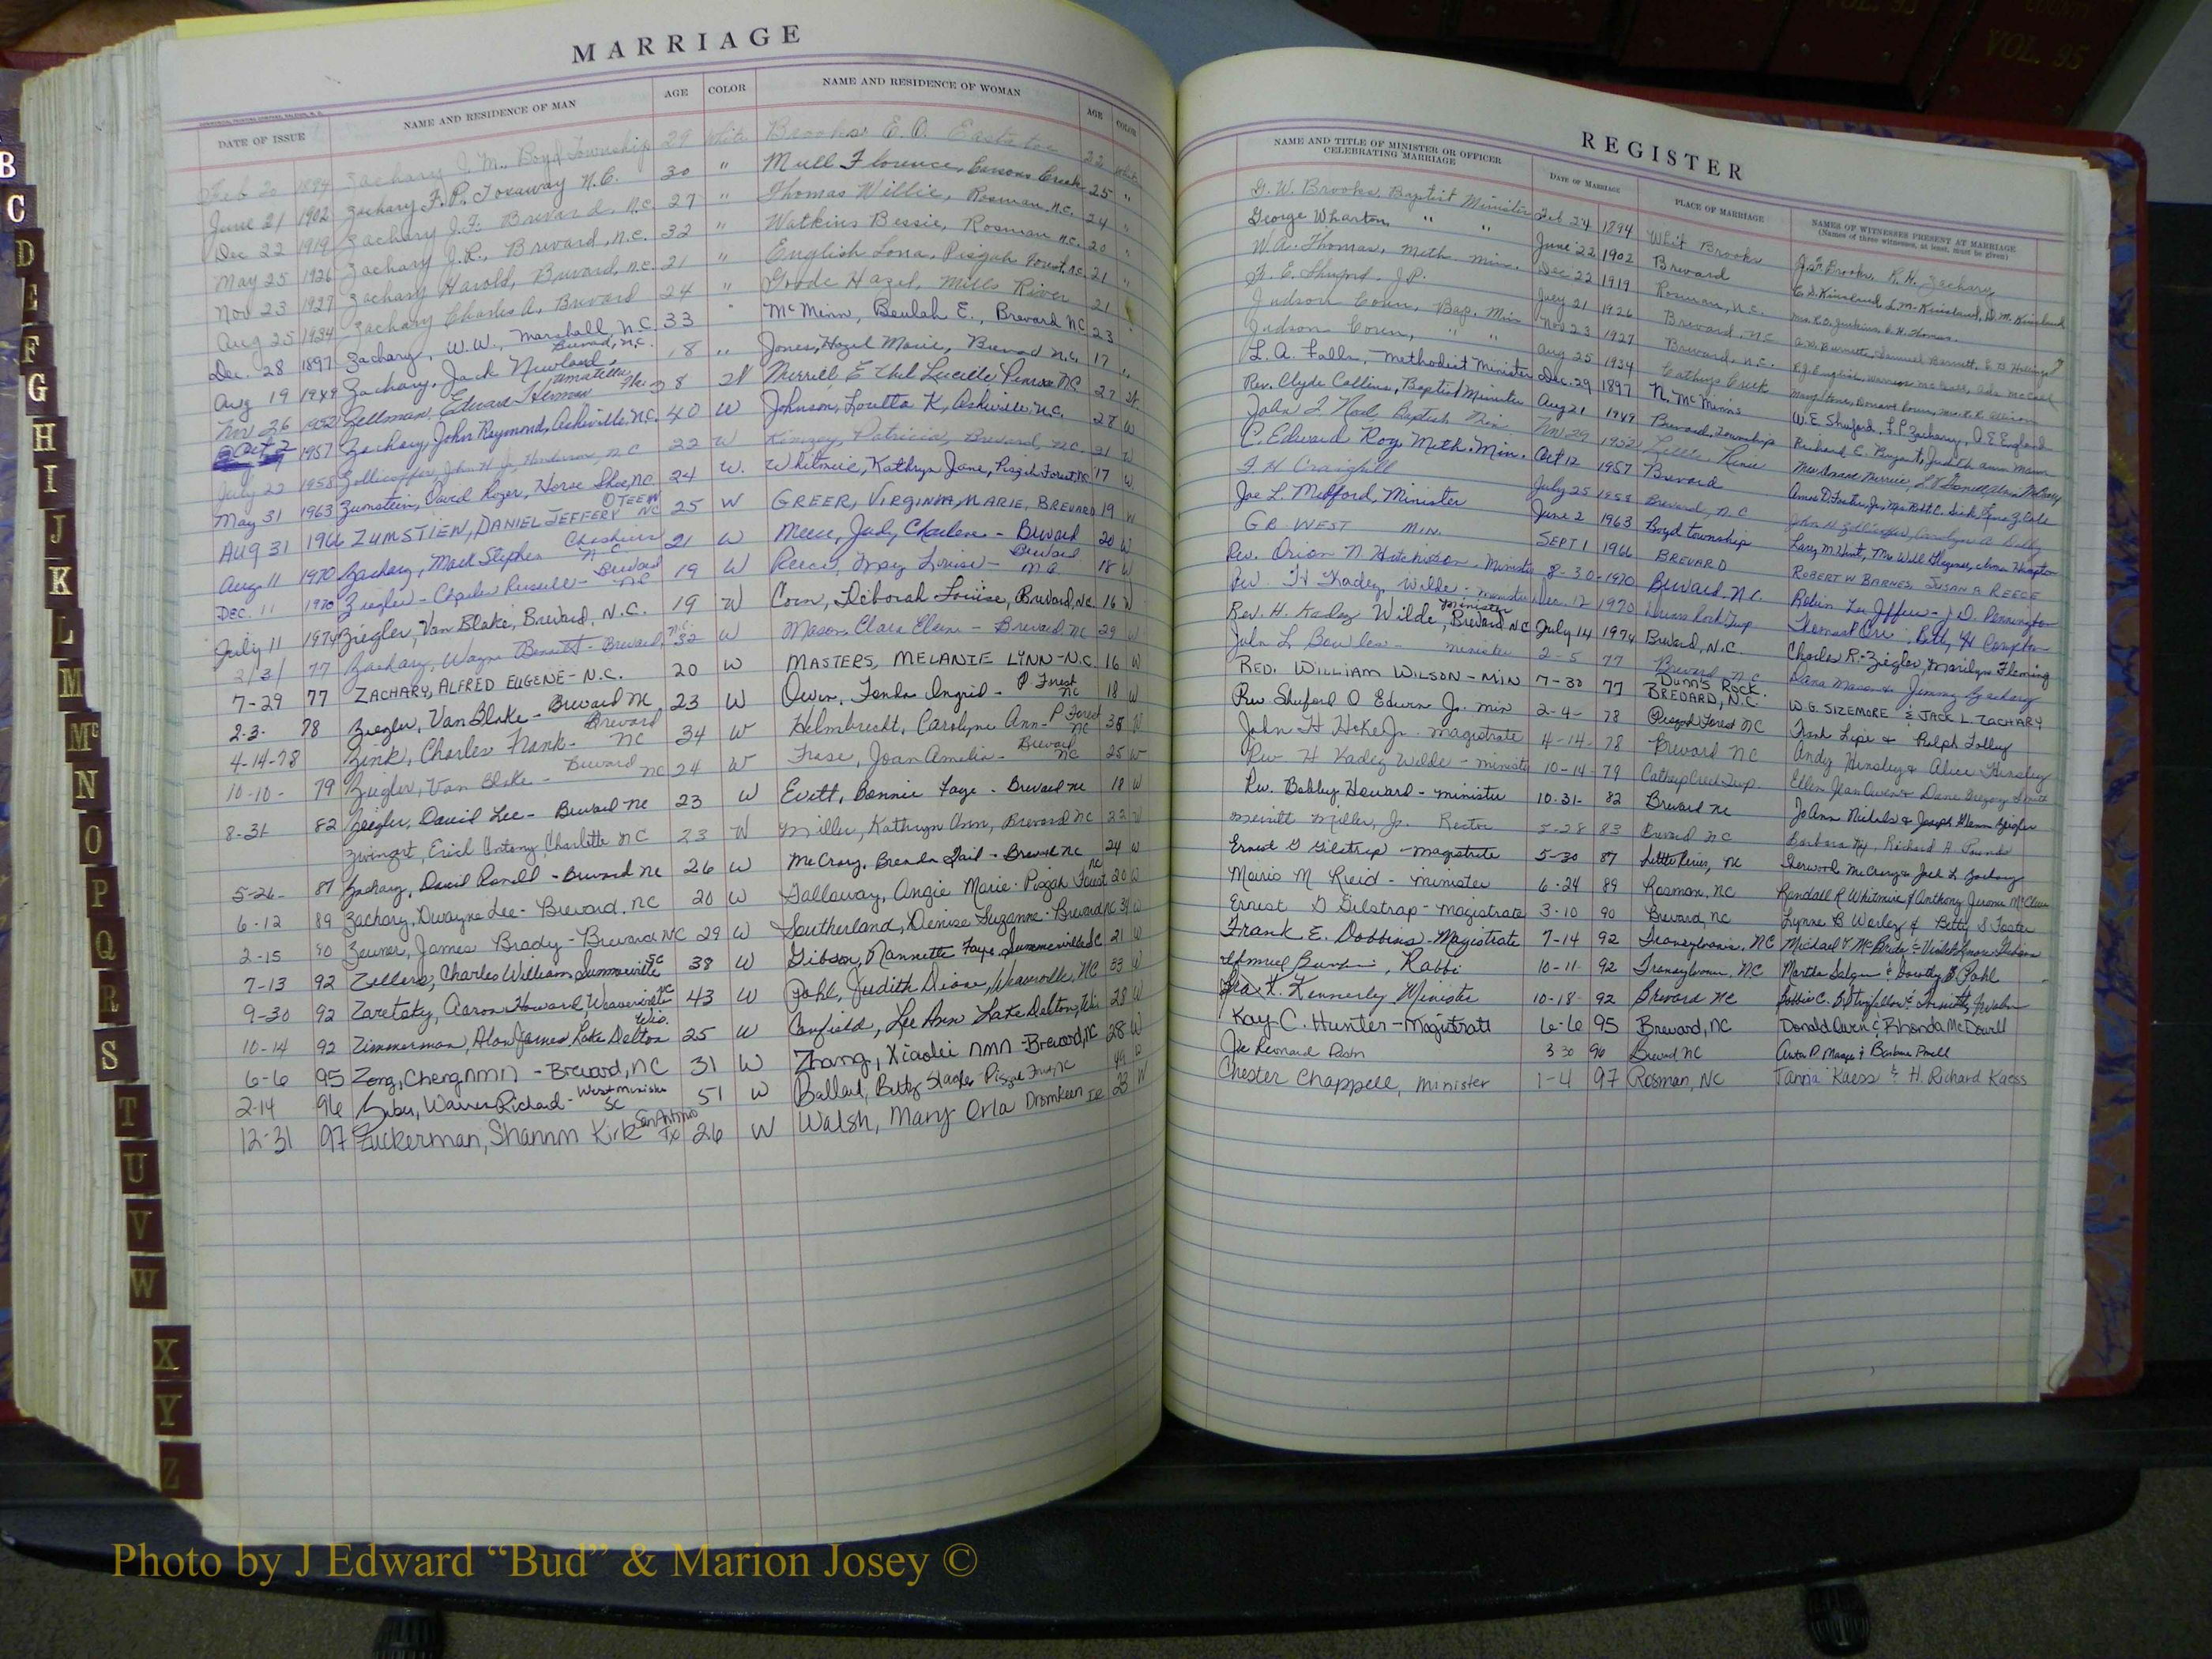 MARRIAGE
DATE OF ISSUE NAME AND RESIDENCE OF MAN AGE COLOR NAME AND RESIDENCE OF WOMAN AGE COLOR
Feb 20 1894 Zachary J. M., Boyd Township 29 white Brooks E. O. Eastatoe 22 white
June 21 1902 Zachary F. P. Toxaway N.C. 30 " Mull Florence, Creek 25 "
Dec 22 1919 Zachary J. F. Brevard, N.C. 27 " Thomas Willie, Rosman N.C. 24 "
May 25 1926 Zachary J. R., Brevard, N.C. 32 " Watkins Bessie, Rosman N.C. 20 "
Nov 23 1927 Zachary Harold, Brevard, N.C. 21 " English Lona, Pisgah Forest N.C. 21 "
Aug 25 1934 Zachary Charles A, Brevard 24 " Hazel, Mills River 21
Dec. 28 1897 Zachary, W. W., Marshall, N.C. 33 " McMinn, Beulah E., Brevard NC 23
Aug 19 1949 Zachary, Jack Newland, Brevard, N.C. 18 " Jones, Hazel Marie, Brevard N.C. 17 "
Nov 26 1952 Zellman, Edward Umatilla Fla 38 W Merrill, Ethel Lucille, Penrose NC 27 W
Oct 2 1957 Zachary, John Raymond, Asheville, N.C. 40 W Johnson, Loretta K, Asheville, N.C. 28 W
July 22 1958 Zollicoffer, John H. Jr, Henderson, N C 22 W Kimzey, Patricia, Brevard, N.C. 21 W
May 31 1963 Zumstein, David Roger, Horse Shoe, N.C. 24 W. Whitmire, Kathryn Jane, Pisgah Forest NC 17 W
AUG 31 1966 ZUMSTIEN, DANIEL JEFFERY OTEEN NC 25 W GREER, VIRGINIA MARIE, BREVARD 19 W
Aug 11 1970 Zachary, Mack Stephen NC 21 W Meece, Judy Charlene - Brevard 20 W
DEC. 11 1970 Ziegler - Charles Russell - Brevard NC 19 W Reece, May Louise - Brevard NC 18 W
July 11 1974 Ziegler, Van Blake, Brevard, N.C. 19 W Corn, Deborah Louise, Brevard, NC. 16 W
2/3/ 77 Zachary, Wayne Bennett - Brevard, N.C. 32 W Mason, Clara Elaine - Brevard NC 29 W
7-29 77 ZACHARY, ALFRED EUGENE - N.C. 20 W MASTERS, MELANIE LYNN - N.C. 16 W
2-3- 78 Ziegler, Van Blake - Brevard NC 23 W Owen, Tonda Ingrid - P. Forest NC 18 W
4-14-78 Zink, Charles Frank - Brevard NC 34 W Helmbrecht, Carolyne Ann - P Forest NC 38 W
10-10- 79 Ziegler, Van Blake - Brevard NC 24 W Frase, Joan Amelia - Brevard NC 25 W
8-31 82 Zeigler, David Lee - Brevard NC 23 W Evitt, Bonnie Faye - Brevard NC 18 W
Zwingart, Erich Antony, Charlotte NC 23 W Miller, Kathryn Ann, Brevard NC 23 W
5-26- 87 Zachary, David Ranall - Brevard NC 26 W McCrary, Brenda Gail - Brevard NC 24 W
6-12 89 Zachary, Dwayne Lee - Brevard, NC 20 W Galloway, Angie Marie - Pisgah Forest NC 20 W
2-15 90 Zeuner, James Brady - Brevard NC 29 W Southerland, Denise Suzanne - Brevard NC 31 W
7-13 92 Zellers, Charles William Summerville SC 38 W Gibson, Nannette Faye, Summerville SC 21 W
9-30 92 Zaretsky, Aaron Howard, Weaverville NC 43 W Pahl, Judith Diane, Weaverville, NC 33 W
10-14 92 Zimmerman, Alan James Lake Delton Wis. 25 W Canfield, Lee Ann Lake Delton, Wis 28 W
6-6 95 Zeng, Cheng NMN - Brevard, NC 31 W Zhang, Xiaolei NMN - Brevard, NC 28 W
2-14 96 Warren Richard - Westminster SC 51 W Ballard, Betty Pisgah Forest, NC 49 W
12-31 97 Zuckerman, Shannon Kirk San Antonio TX 26 W Walsh, Mary Orla Dromkeen 23 W
REGISTER
NAME AND TITLE OF MINISTER OR OFFICER CELEBRATING MARRIAGE DATE OF MARRIAGE PLACE OF MARRIAGE NAMES OF WITNESSES PRESENT AT MARRIAGE (Names of three witnesses, at least, must be given)
G. W. Brooks, Baptist Minister Feb 24 1894 Whit Brooks Brooks, R. H. Zachary
George Wharton, " " June 22 1902 Brevard Kinsland, D. M. Kinsland
W. A. Thomas, Meth Min. Dec 22 1919 Rosman, N.C.
F. E. Shuford, J.P. July 21 1926 Brevard, NC
Judson Corn, Bap. Min Nov 23 1927 Brevard, N.C.
Judson Corn, " " Aug 25 1934 Cathys Creek
L. A. Falls, Methodist Minister Dec. 29 1897 N. McMinns W. E. Shuford, F P Zachary, A E England
Rev. Clyde Collins, Baptist Minister Aug 21 1949 Brevard, Township Richard E. Bryant, Judith Ann Mann
John Baptist Min Nov 29 1952 Little River
C. Edward Roy, Meth. Min. Oct 12 1957 Brevard
F H Craighill July 25 1958 Brevard, N C John H Zollicoffer, Carolyn A
Joe L. Medford, Minister June 2 1963 Boyd township
G B WEST MIN. SEPT 1 1966 BREVARD ROBERT W BARNES, SUSAN A REECE
Rev. Orion N. Hutchinson - Minister 8-30-1970 Brevard, N.C. Robin Lee Jeffers - J. D. Pennington
Rev. H. Kadez Wilde - Minister Dec. 12 1970 Dunns Rock Twp Thomas P. Orr, Betty H Compton
Rev. H. Kadez Wilde, Minister Brevard NC July 14 1974 Brevard, N.C. Charles R. Ziegler, Marilyn Fleming
John L Bowles - Minister 2-5 77 Brevard, NC Dana Mason & Jimmy Zachary
REV. WILLIAM WILSON - MIN 7-30 77 DUNN'S ROCK. BREVARD, N.C. W. G. SIZEMORE & JACK L. ZACHARY
Rev Shuford O Edwin Jr. Min 2-4- 78 Pisgah Forest NC Frank Lipe & Ralph Talley
John H Hoke Jr - Magistrate 4-14-78 Brevard NC Andy Hensley & Alice Hensley
Rev H Kadez Wilde - Minister 10-14-79 Cathey Creek Twp. Ellen Jean Owen & Dane Gregory
Rev. Bobby Howard - Minister 10-31- 82 Brevard NC JoAnn Nichols & Joseph Glenn Zeigler
Merritt Miller, Jr. Rector 5-28 83 Brevard NC Barbara Richard A Pounds
Ernest D Gilstrap - Magistrate 5-30 87 Little River, NC Sherwood McCrary & Jack L Zachary
Morris M Reid - Minister 6-24 89 Rosman, NC Randall R Whitmire & Anthony Jerome
Ernest D Gilstrap - Magistrate 3-10 90 Brevard, NC Lynne B Worley & Betty S Foster
Frank E. Dobbins - Magistrate 7-14 92 Transylvania, NC Michael T. McBride & Violet Gibson
Rabbi 10-11- 92 Transylvania, NC Martha Salyer & Dorothy B. Pahl
Ira K. Kennerly Minister 10-18- 92 Brevard NC
Kay C. Hunter - Magistrate 6-6 95 Brevard, NC Donald Owen & Rhonda McDowell
Joe Leonard Pastor 3 30 96 Brevard NC Barbara Powell
Chester Chappell, Minister 1-4 97 Rosman, NC Tanna Kaess & H. Richard Kaess
B
C
D
E
F
G
H
I
J
K
L
M
Mc
N
O
P
Q
R
S
T
U
V
W
X
Y
Z
VOL. 95
Photo by J Edward “Bud” & Marion Josey ©